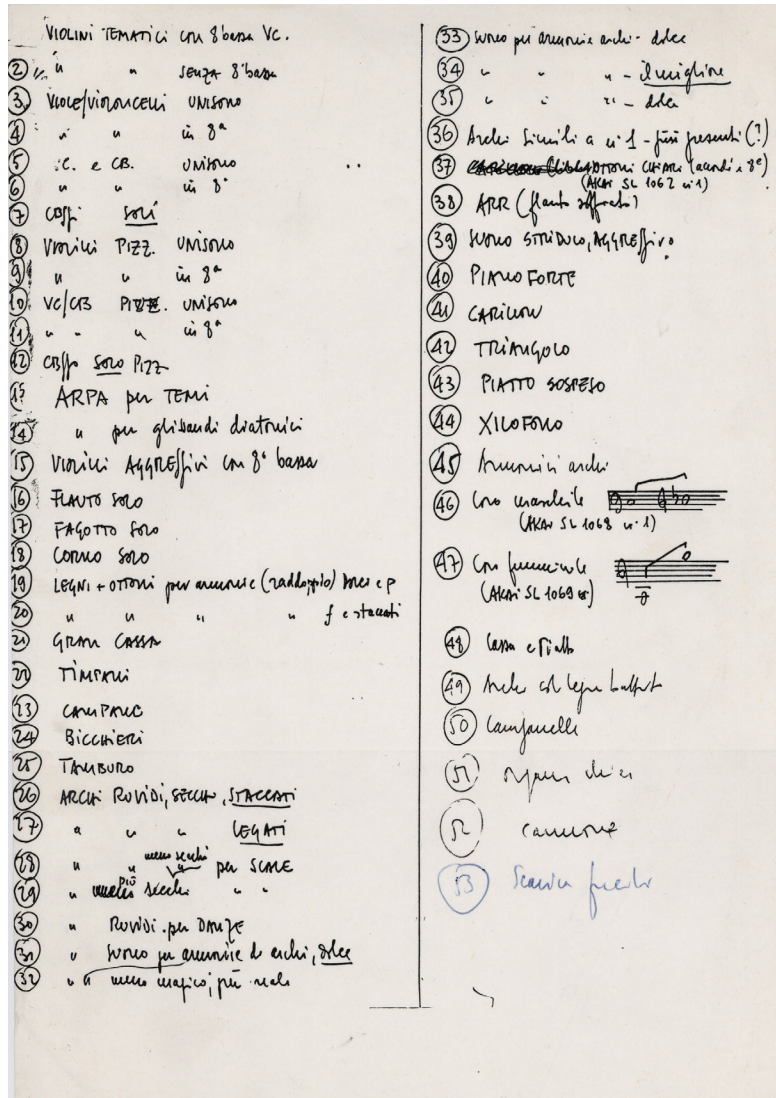 VIOLINI TEMATICI con 8ª bassa VC.
2 " " SENZA 8ª bassa
3 VIOLE/VIOLONCELLI UNISONO
4 " " in 8ª
5 VC. e CB. UNISONO
6 " " in 8ª
7 CBssi SOLI
8 VIOLINI PIZZ. UNISONO
9 " " in 8ª
10 VC/CB PIZZ. UNISONO
11 " " " in 8ª
12 CBsso SOLO PIZZ
13 ARPA per TEMI
14 " per glissandi diatonici
15 VIOLINI AGGRESSIVI con 8ª bassa
16 FLAUTO SOLO
17 FAGOTTO SOLO
18 CORNO SOLO
19 LEGNI + OTTONI per armonie (raddoppio) DOLCI e p
20 " " " " f e staccati
21 GRAN CASSA
22 TIMPANI
23 CAMPANE
24 BICCHIERI
25 TAMBURO
26 ARCHI RUVIDI, SECCHI, STACCATI
27 " " " LEGATI
28 " " meno secchi per SCALE
29 " più secchi " "
30 " RUVIDI per DANZE
31 " suono per armonie di archi, dolce
32 " " meno magico, più reale
33 suono per armonie archi - dolce
34 " " " - il migliore
35 " " " - dolce
36 Archi simili a n° 1 - più presenti (?)
37 OTTONI CHIARI (accordi e 8ª)
(AKAI SL 1062 n° 1)
38 ARR (flauto soffiato)
39 SUONO STRIDULO, AGGRESSIVO
40 PIANOFORTE
41 CARILLON
42 TRIANGOLO
43 PIATTO SOSPESO
44 XILOFONO
45 Armonici archi
46 Coro maschile
(AKAI SL 1068 n° 1)
47 Coro femminile
(AKAI SL 1069)
48 Cassa e Piatto
49 Archi col legno battuto
50 Campanelle
51 organo chiesa
52 cannone
53 Scarica fucile